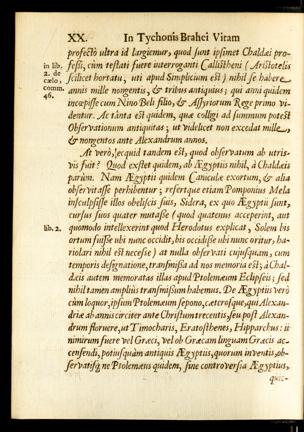 XX. In Tychonis Brahei Vitam
profectò ultra id largiemur, quod sunt ipsimet Chaldæi pro-
fessi, cùm testati fuere interroganti Callistheni (Aristotelis
in lib.
2. de
cælo,
comm.
46.
scilicet hortatu, uti apud Simplicium est) nihil se habere
annis mille nongentis, & tribus antiquius; qui anni quidem
incœpisse cum Nino Beli filio, & Assyriorum Rege primo vi-
dentur. Ac tanta est quidem, quæ colligi ad summum potest
Observationum antiquitas; ut videlicet non excedat mille,
& nongentos ante Alexandrum annos.
At verò, ecquid tandem est, quod observatum ab utris-
vis fuit? Quod exstet quidem, ab Ægyptiis nihil, à Chaldæis
parùm. Nam Ægyptii quidem Caniculæ exortum, & alia
observitasse perhibentur; refertque etiam Pomponius Mela
insculpsisse illos obeliscis suis, Sidera, ex quo Ægyptii sunt,
cursus suos quater mutasse (quod quatenus acceperint, aut
lib. 2.
quomodo intellexerint quod Herodotus explicat, Solem bis
ortum fuisse ubi nunc occidit, bis occidisse ubi nunc oritur, ha-
riolari nihil est necesse) at nulla observati cujusquam, cum
temporis designatione, transmissa ad nos memoria est; à Chal-
dæis autem memoratas illas apud Ptolemæum Eclipseis; sed
nihil tamen ampliùs transmissum habemus. De Ægyptiis verò
cùm loquor, ipsum Ptolemæum sepono, cæterosque, qui Alexan-
driæ ab annis circiter ante Christum trecentis, seu post Alexan-
drum floruere, ut Timocharis, Eratosthenes, Hipparchus: ii
nimirum fuere vel Græci, vel ob Græcam linguam Græcis ac-
censendi, potiusquàm antiquis Ægyptiis, quorum inventis, ob-
servatisq; ne Ptolemæus quidem, sine controversia Ægyptius,
quic-